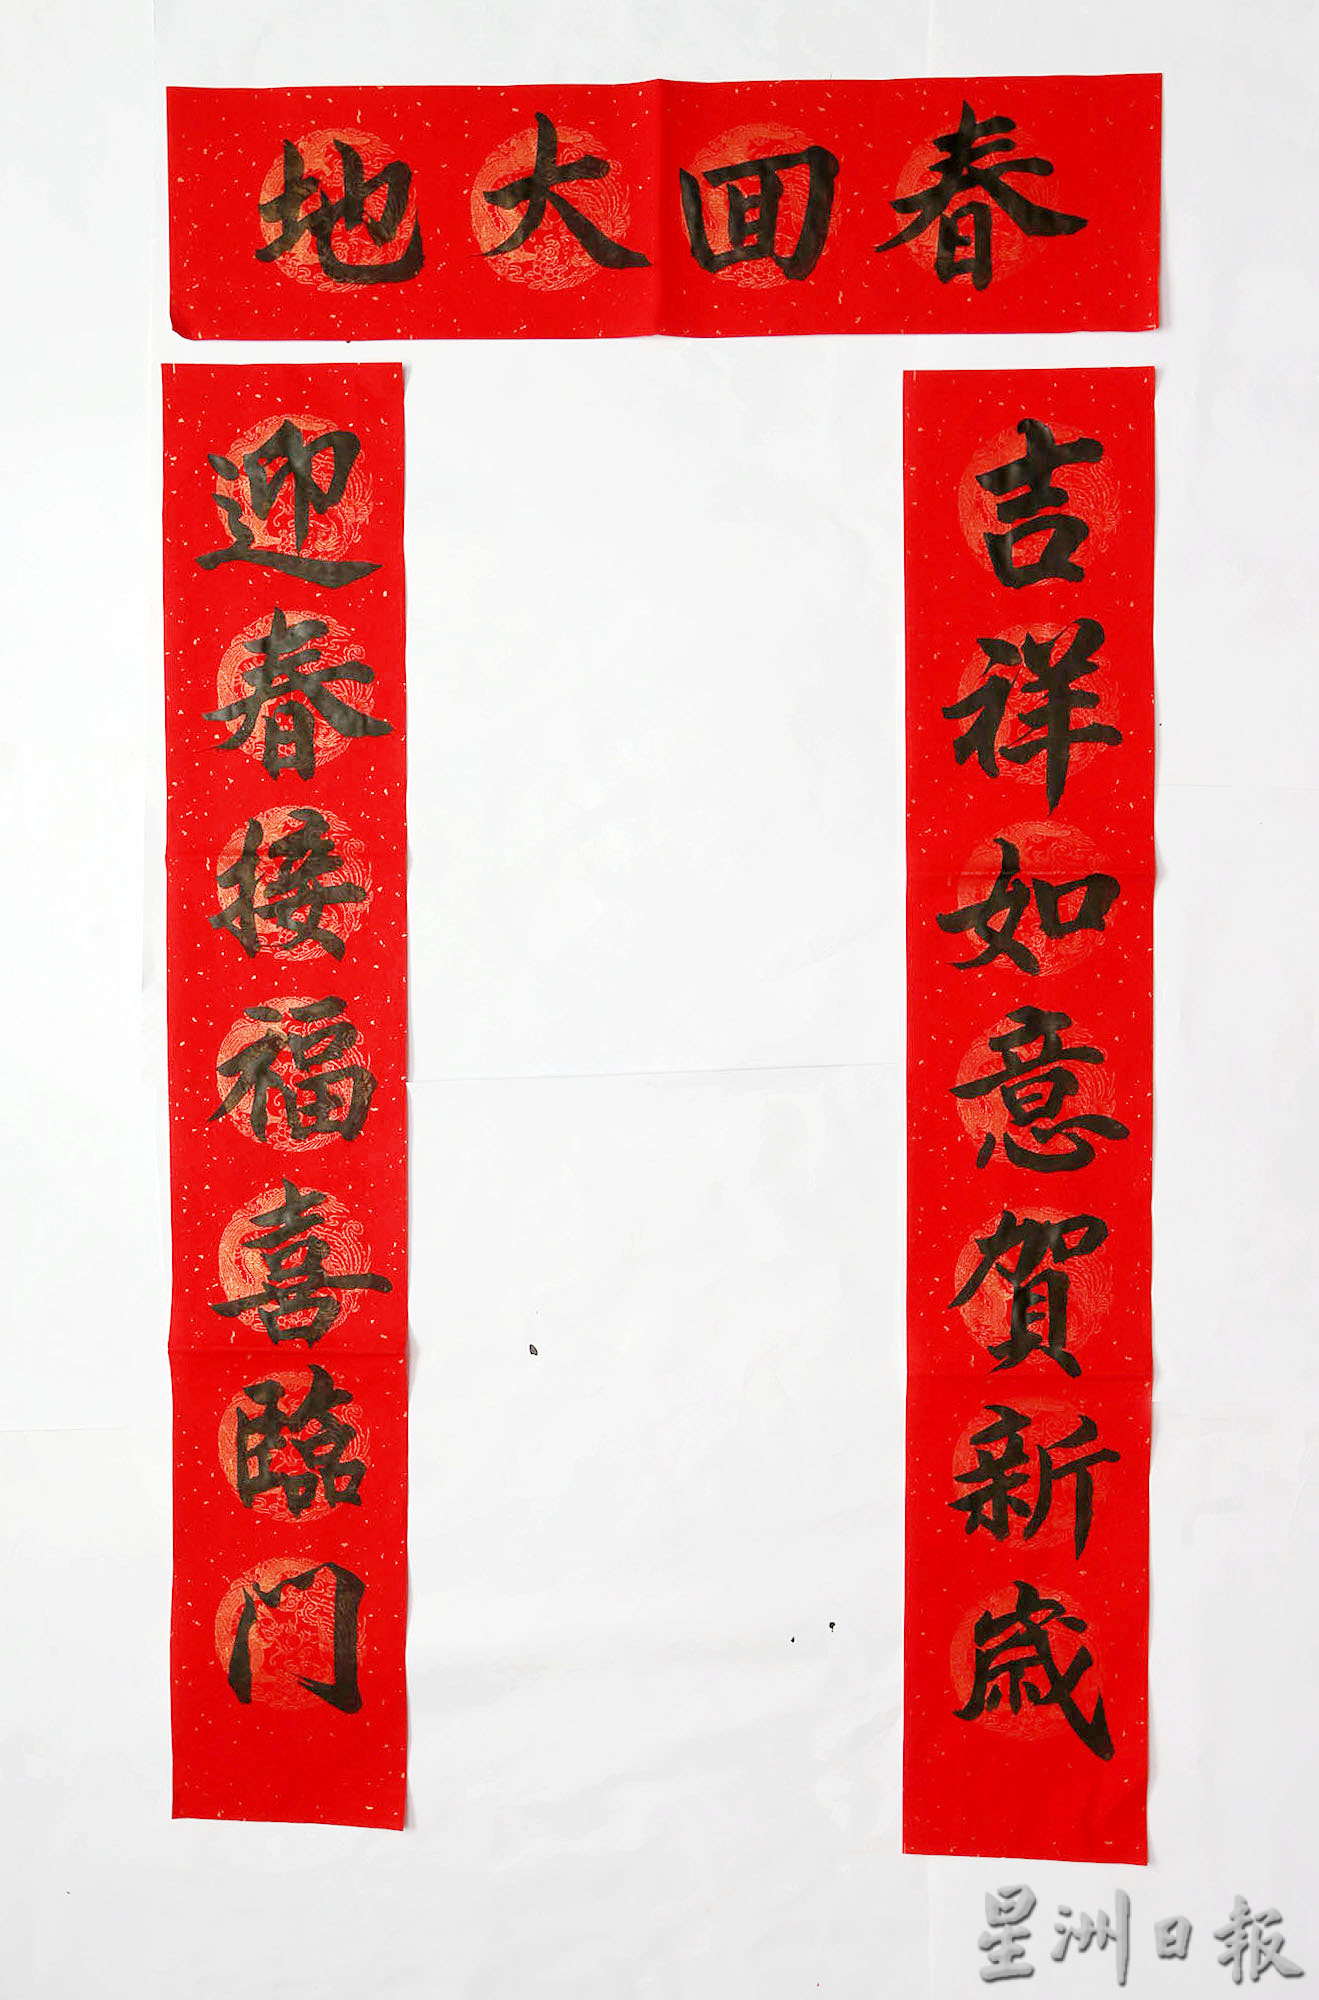 春回大地
吉祥如意賀新歲
迎春接福喜臨門
星洲日報